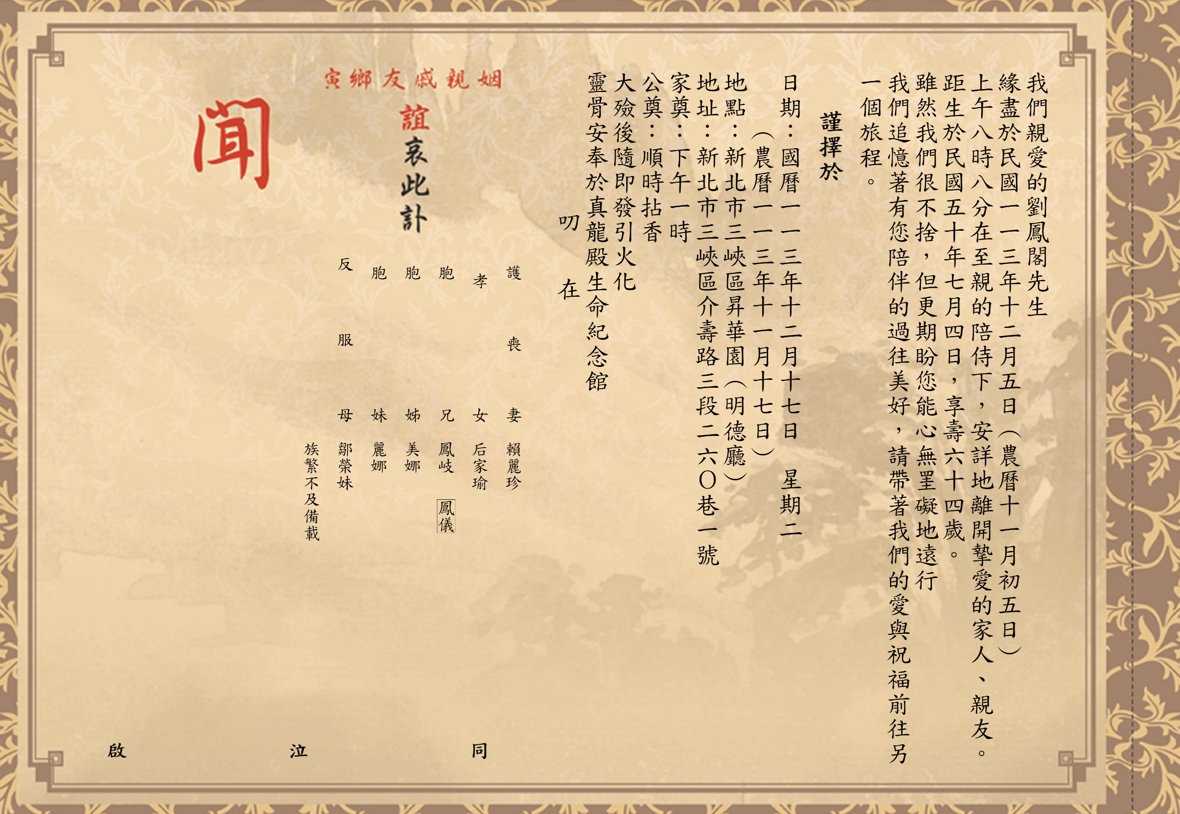 我們親愛的劉鳳閣先生
緣盡於民國一一三年十二月五日（農曆十一月初五日）
上午八時八分在至親的陪侍下，安詳地離開摯愛的家人、親友。
距生於民國五十年七月四日，享壽六十四歲。
雖然我們很不捨，但更期盼您能心無罣礙地遠行
我們追憶著有您陪伴的過往美好，請帶著我們的愛與祝福前往另
一個旅程。
謹擇於
日期：國曆一一三年十二月十七日　星期二
（農曆一一三年十一月十七日）
地點：新北市三峽區昇華園（明德廳）
地址：新北市三峽區介壽路三段二六〇巷一號
家奠：下午一時
公奠：順時拈香
大殮後隨即發引火化
靈骨安奉於真龍殿生命紀念館
叨在
姻親戚友鄉寅
誼哀此訃
聞
護喪妻 賴麗珍
孝女 后家瑜
胞兄 鳳岐 鳳儀
胞姊 美娜
胞妹 麗娜
反服母 鄒榮妹
族繁不及備載
同泣啟